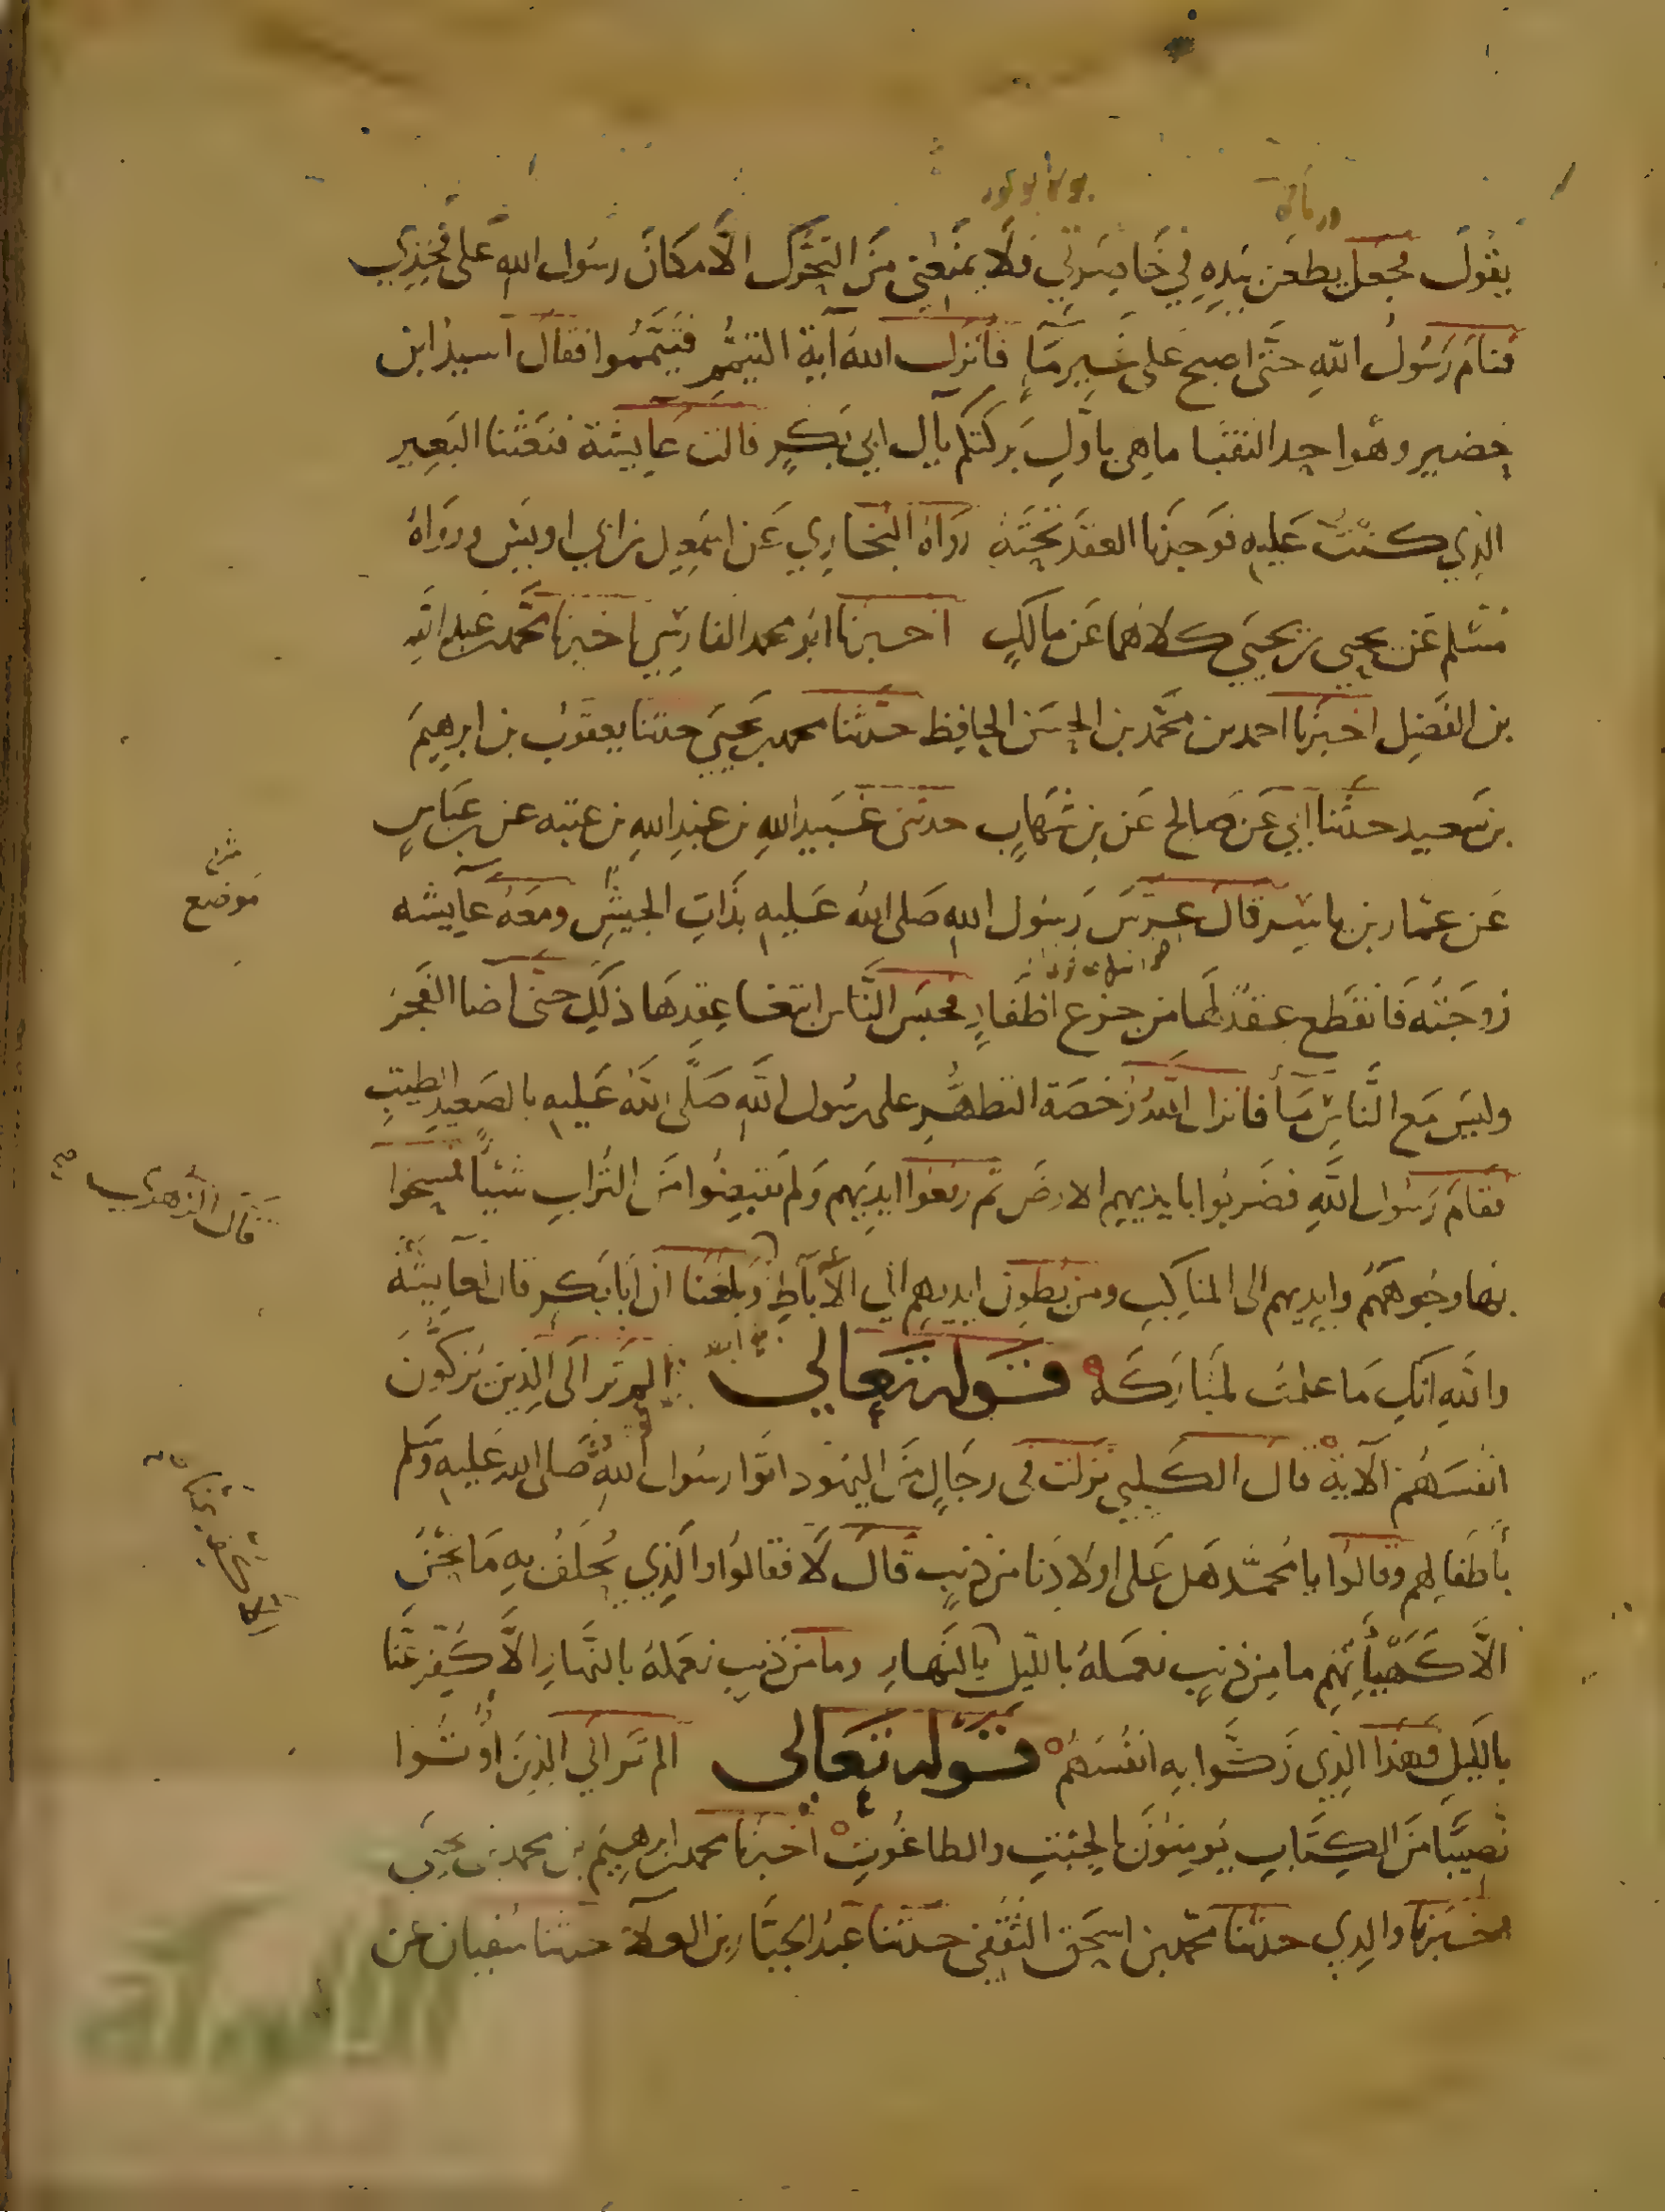 يقول فجعل يطعن بيده في خاصرتي فلا يمنعني من التحرك الا مكان رسول الله على فخذي
فنام رسول الله حتى اصبح على غير ماء فانزل الله آية التيمم فتيمموا فقال اسيد ابن
حضير وهو احد النقبا ما هي باول بركتكم يآل ابي بكر قالت عايشة فبعثنا البعير
الذي كنت عليه فوجدنا العقد تحته رواه البخاري عن اسمعيل بن ابي اويس ورواه
مسلم عن يحيى بن يحيى كلاهما عن مالك اخبرنا ابو محمد الفارسي اخبرنا محمد بن عبد الله
بن الفضل اخبرنا احمد بن محمد بن الحسن الحافظ حدثنا محمد بن يحيى حدثنا يعقوب بن ابرهيم
بن سعيد حدثنا ابي عن صالح عن بن شهاب حدثنى عبيد الله بن عبد الله بن عتبه عن بن عباس
عن عمار بن ياسر قال عرس رسول الله صلى الله عليه بذات الجيش ومعه عايشه
زوجته فانقطع عقد لها من جزع اظفار فحبس الناس ابتغا عقدها ذلك حتى اضا الفجر
وليس مع الناس ما فانزل الله رخصة التطهر على رسول الله صلى الله عليه بالصعيد الطيب
فقام رسول الله فضربوا بايديهم الارض ثم رفعوا ايديهم ولم يقبضوا من التراب شيئا فمسحوا
بها وجوههم وايديهم الى المناكب ومن بطون ايديهم الى الآباط وبلغنا ان ابا بكر قال لعايشة
والله انك ما علمت لمباركة قوله تعالى الم تر الى الذين يزكون
انفسهم الآية قال الكلبي نزلت في رجال من اليهود اتوا رسول الله صلى الله عليه وسلم
بأطفالهم وقالوا يا محمد هل على اولادنا من ذنب قال لا فقالوا والذي يحلف به ما نحن
الا كهيأتهم ما من ذنب نعمله بالليل بالنهار وما من ذنب نعمله بالنهار الا كفر عنا
بالليل فهذا الذي زكوا به انفسهم قوله تعالى الم تر الى الذين اوتوا
نصيبا من الكتاب يومنون بالجبت والطاغوت اخبرنا محمد بن ابرهيم بن محمد بن يحيى
اخبرنا والدي حدثنا محمد بن اسحق الثقفي حدثنا عبد الجبار بن العلآ حدثنا سفيان عن
موضع
قال الزهري